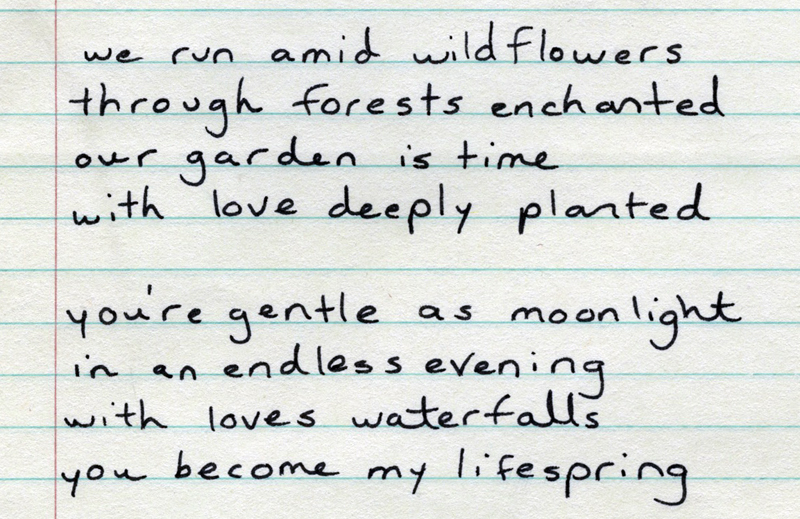 we run amid wildflowers
through forests enchanted
our garden is time
with love deeply planted
you're gentle as moonlight
in an endless evening
with loves waterfalls
you become my lifespring